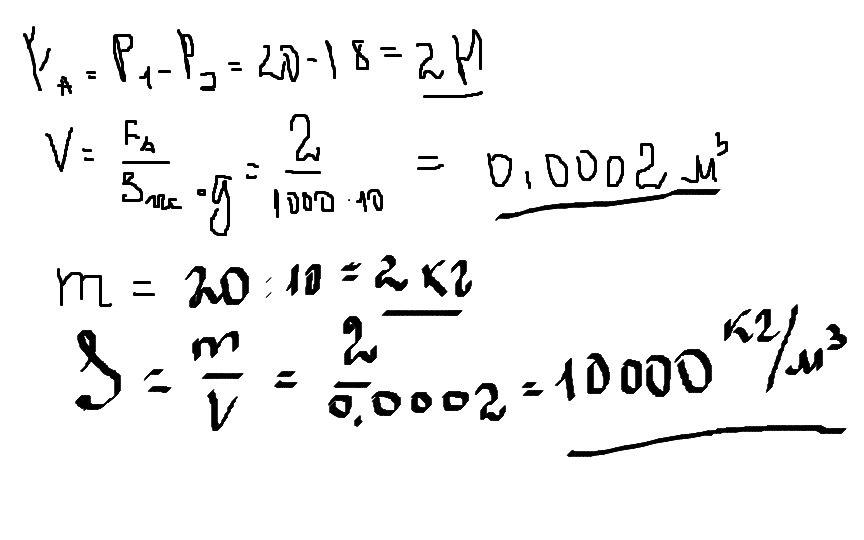 F_A = P_1 - P_2 = 20 - 18 = 2 Н
V = F_A / ρ_жс · g = 2 / 1000 · 10 = 0,0002 м³
m = 20 : 10 = 2 кг
ρ = m / V = 2 / 0,0002 = 10000 кг/м³